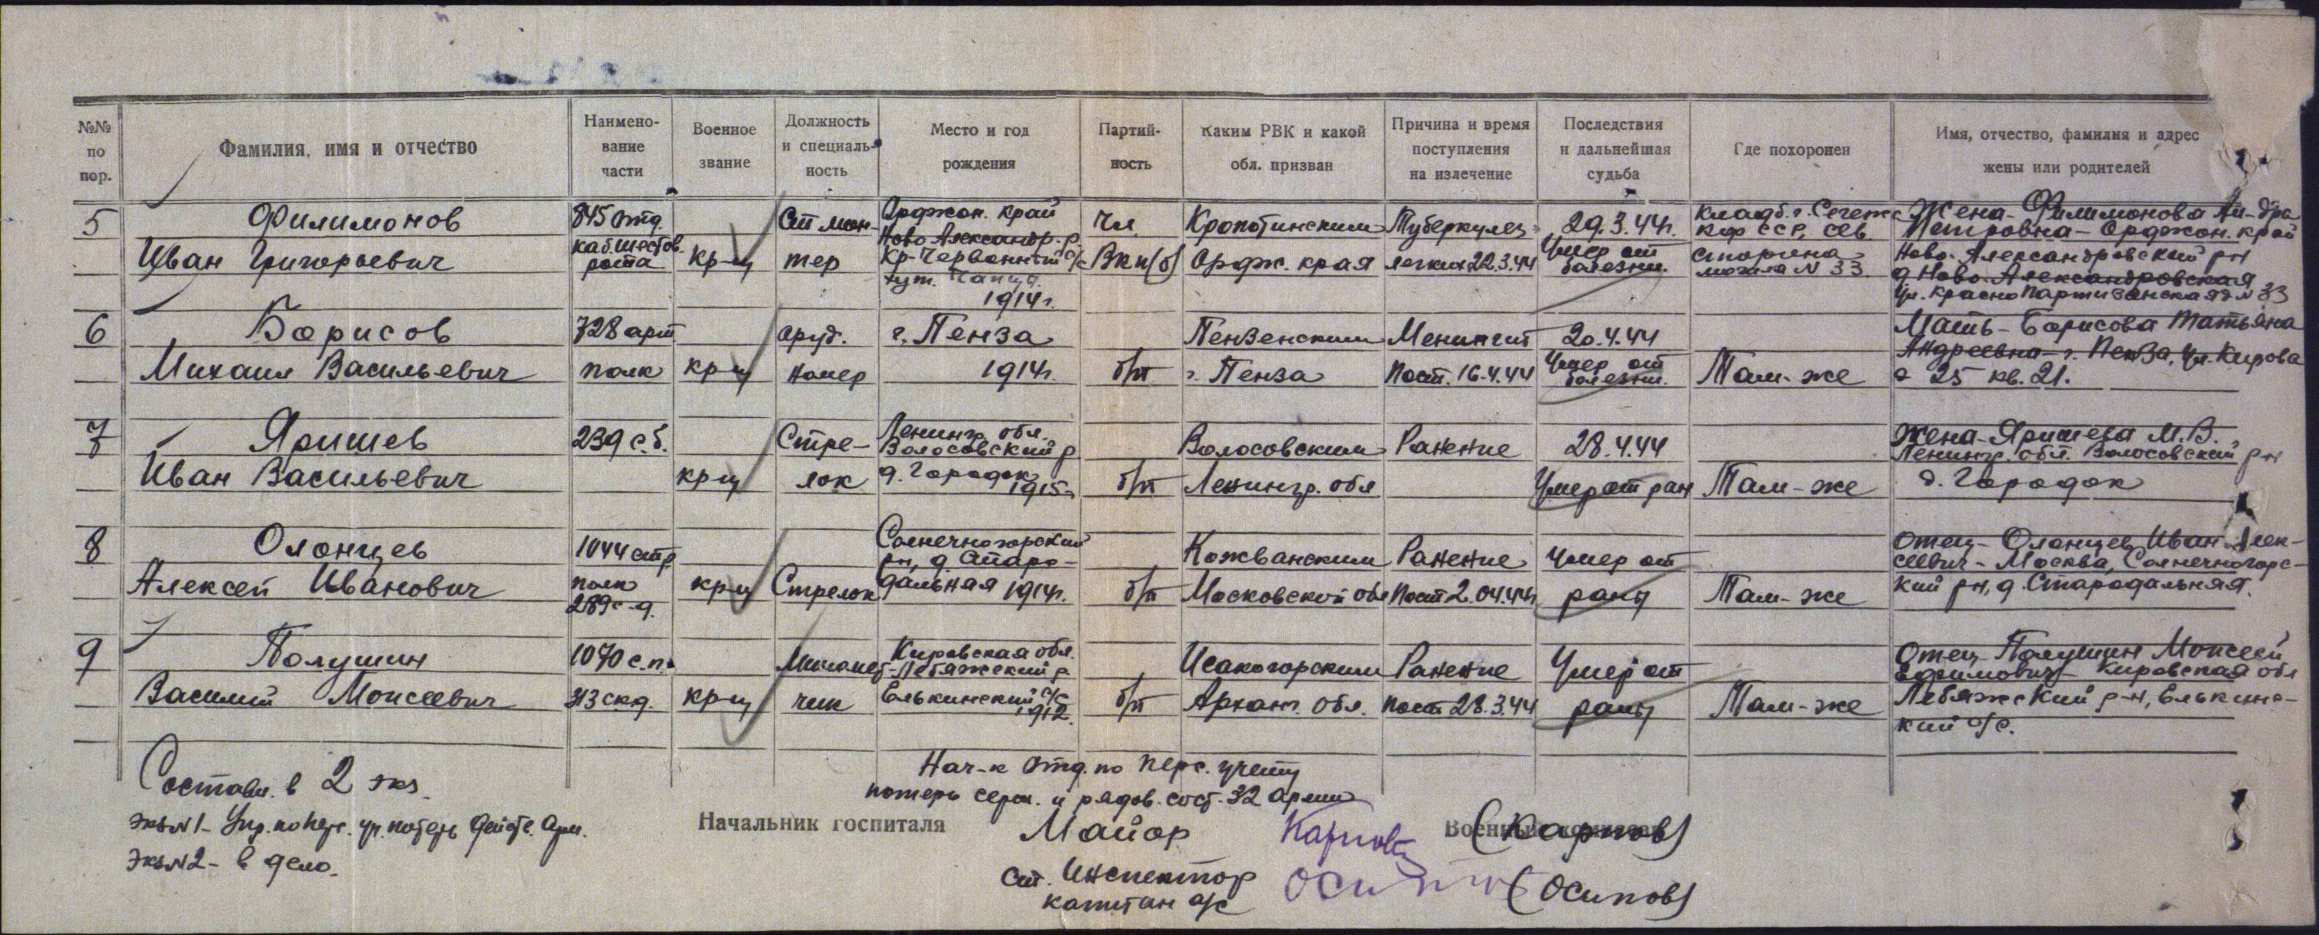 №№ по пор.
Фамилия, имя и отчество
Наимено-вание части
Военное звание
Должность и специаль-ность
Место и год рождения
Партий-ность
Каким РВК и какой обл. призван
Причина и время поступления на излечение
Последствия и дальнейшая судьба
Где похоронен
Имя, отчество, фамилия и адрес жены или родителей
5
Филимонов
Иван Григорьевич
845 отд.
каб. шестов.
рота
кр-ц
Ст. мон-
тер
Орджон. край
Ново Александр. р.
Кр-Червонный с/с
хут.
1914г.
Чл.
ВКП(б)
Кропоткинским
Ордж. края
Туберкулез
легких 22.3.44
29.3.44г.
Умер от
болезни.
Кладб. г. Сегежа
КФ ССР, сев.
сторона
могила N 33
Жена- Филимонова
Петровна- Орджон. край
Ново-Александровский р-н
д. Ново-Александровская
ул. Краснопартизанская д N 33
6
Борисов
Михаил Васильевич
728 арт
полк
кр-ц
оруд.
номер
г. Пенза
1914г.
б/п
Пензенским
г. Пенза
Менингит
Пост. 16.4.44
20.4.44
Умер от
болезни.
Там-же
Мать- Борисова Татьяна
Андреевна- г. Пенза, ул. Кирова
д 25 кв. 21.
7
Яришев
Иван Васильевич
239 с.б.
кр-ц
Стре-
лок
Ленингр. обл.
Волосовский р
д. Городок
1915г
б/п
Волосовским
Ленингр. обл
Ранение
28.4.44
Умер от ран
Там-же
Жена- Яришева М.В.
Ленингр. обл. Волосовский р-н
д. Городок
8
Олонцев
Алексей Иванович
1044 стр
полк
289 с-д.
кр-ц
Стрелок
Солнечногорский
р-н, д. Старо-
дальная 1914г.
б/п
Кожванским
Московской обл
Ранение
Пост 2.04.44г
Умер от
раны
Там-же
Отец- Олонцев Иван Алек-
сеевич- Москва, Солнечногорс-
кий р-н, д. Стародальняя.
9
Полушин
Василий Моисеевич
1070 с.п.
313 скд.
кр-ц
Миномет-
чик
Кировская обл.
Лебяжский р.
Елькинский с/с
1912.
б/п
Исакогорским
Арханг. обл.
Ранение
пост 28.3.44
Умер от
раны
Там-же
Отец Полушин Моисей
Ефимович- Кировская обл
Лебяжский р-н, Елькинс-
кий с/с.
Составл. в 2 экз.
Экз N 1- Упр. по перс. уч. потерь действ. арм.
Экз N 2- в дело.
Нач-к отд. по перс. учету
потерь серж. и рядов. сост. 32 армии
Начальник госпиталя
Майор
Карпов
(Карпов)
ст. инспектор
капитан а/с
Осипов
(Осипов)